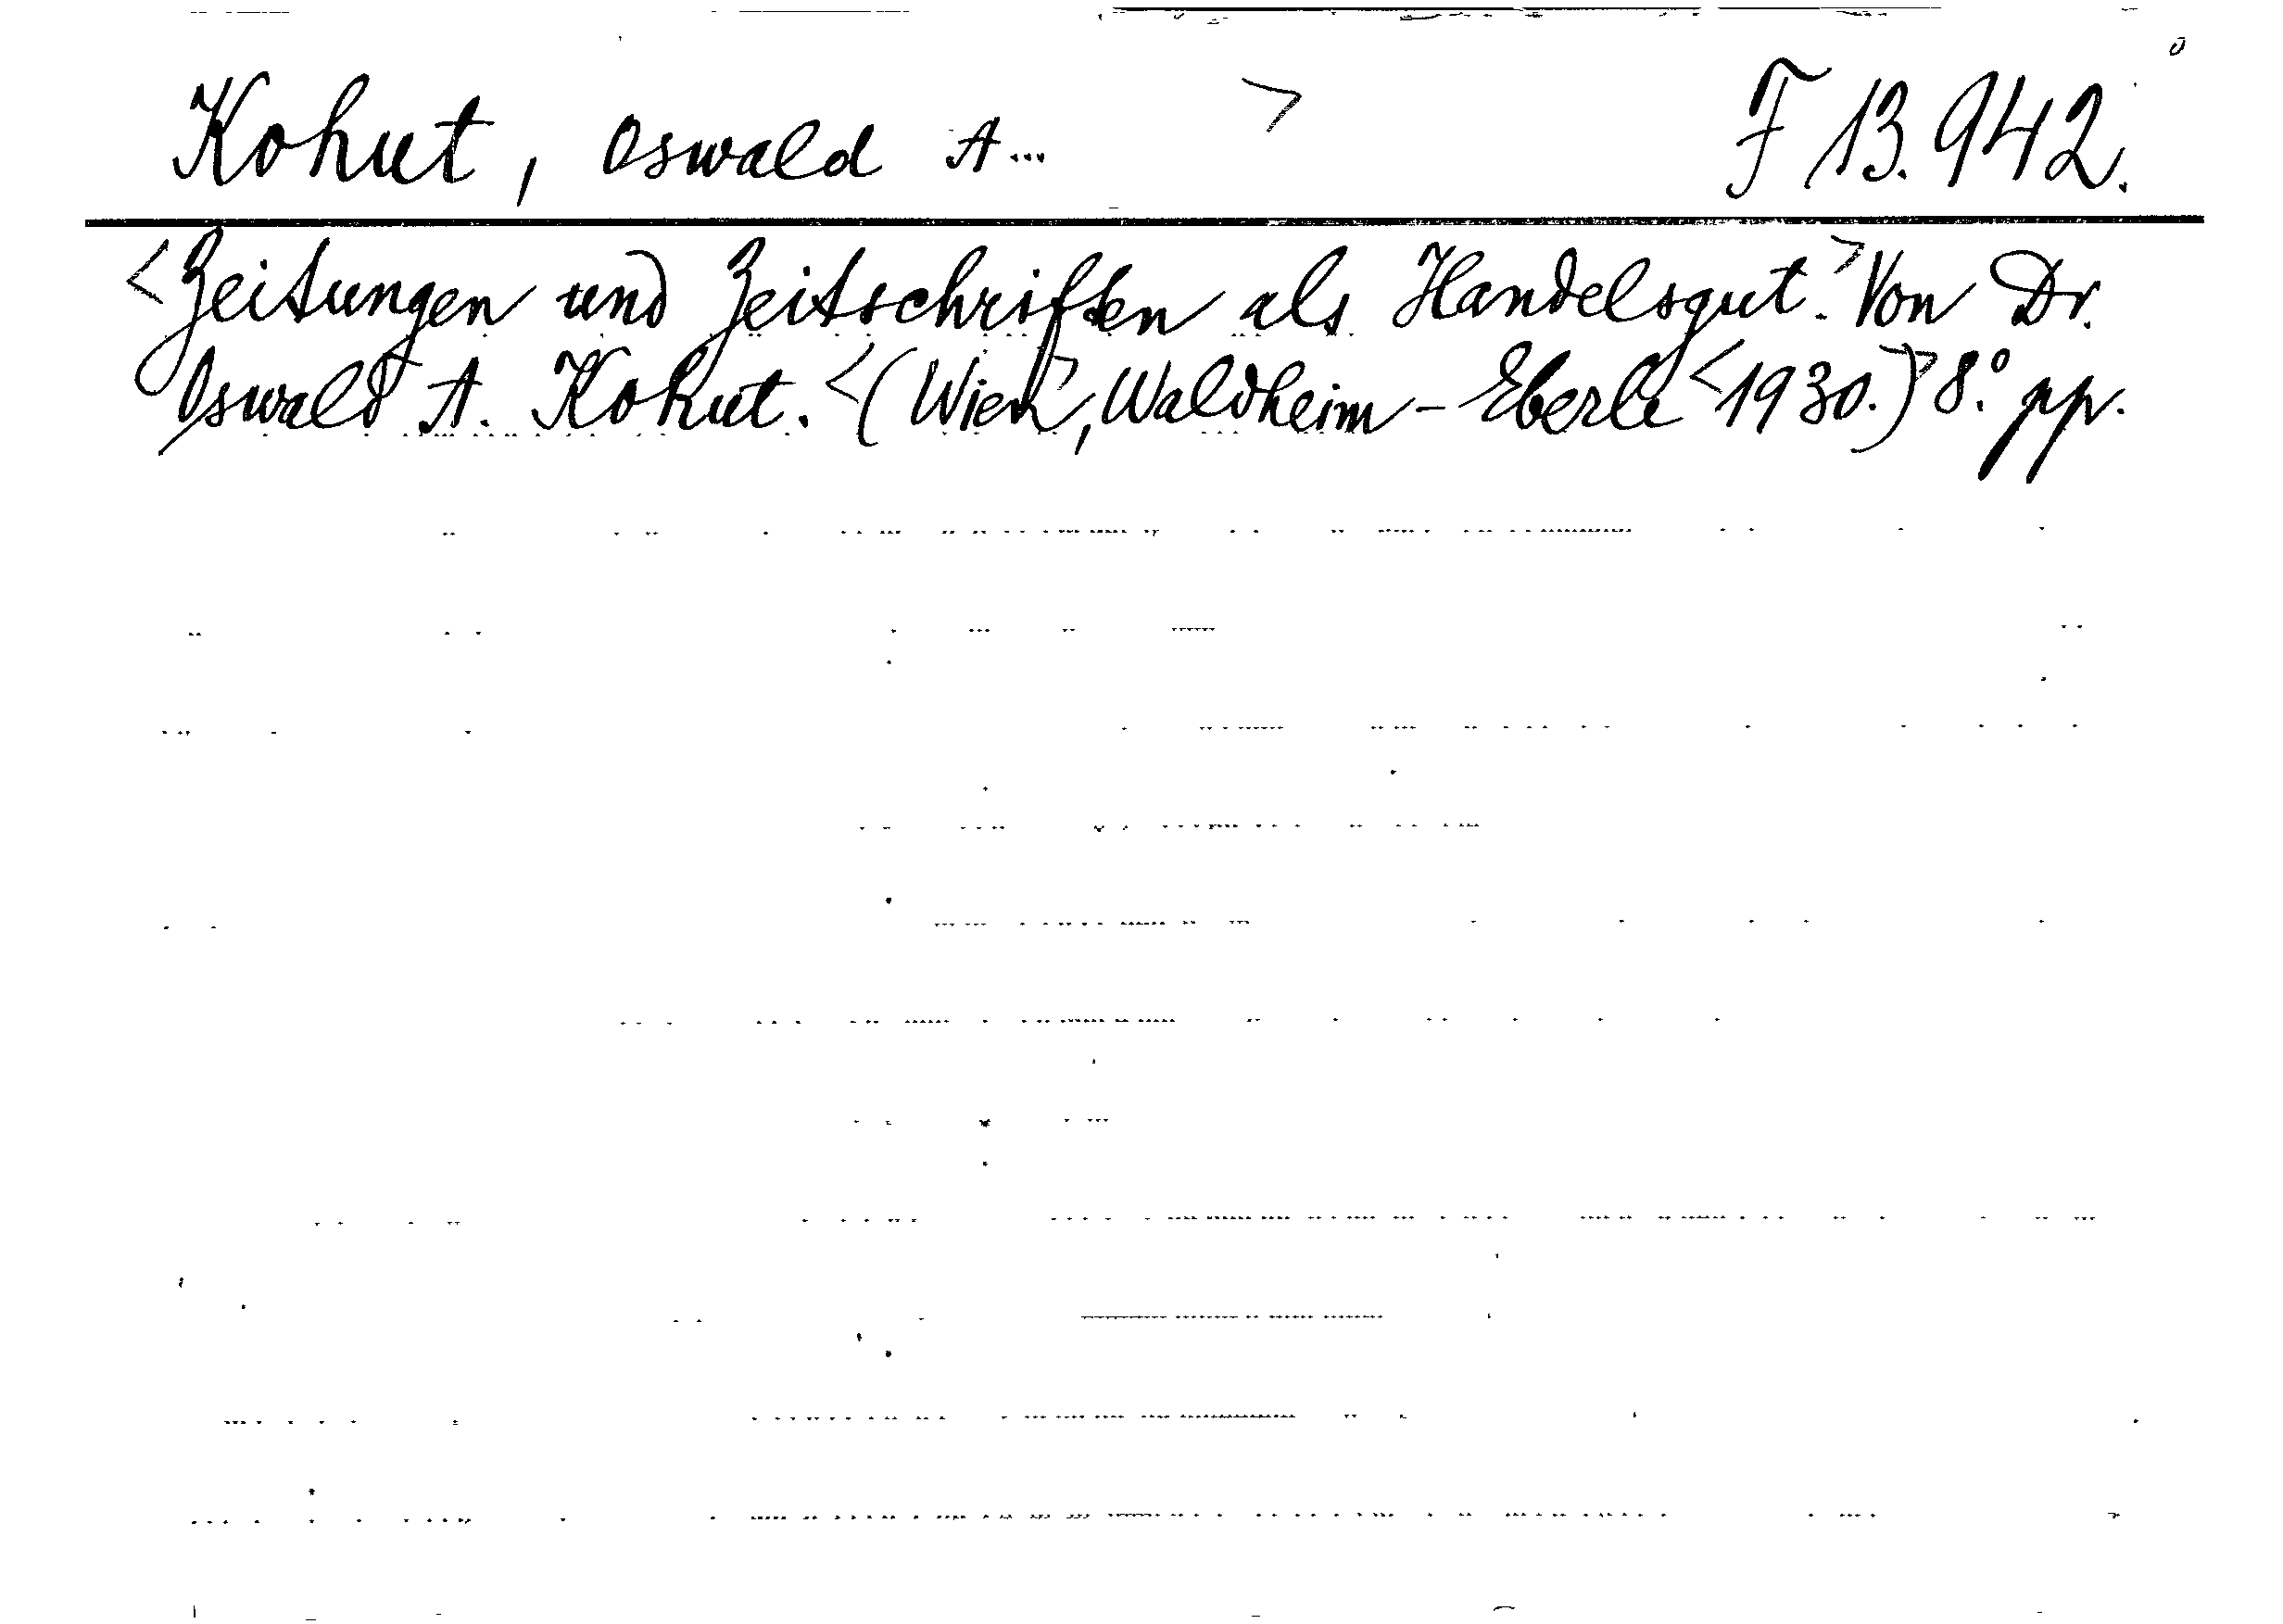 Kohut, Oswald A... > F 13.942.
<Zeitungen und Zeitschriften als Handelsgut.> Von Dr.
Oswald A. Kohut. <(Wien>, Waldheim-Eberle <1930.)> 8.° pp.